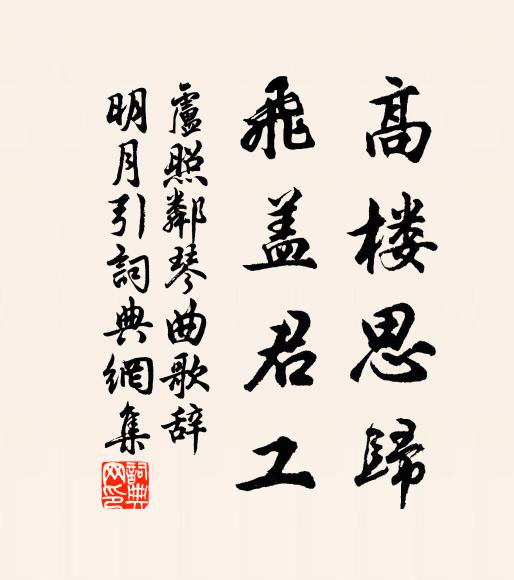 高楼思歸
飛盖君工
盧照鄰琴曲歌辞
明月引詞典網集
詞典网印